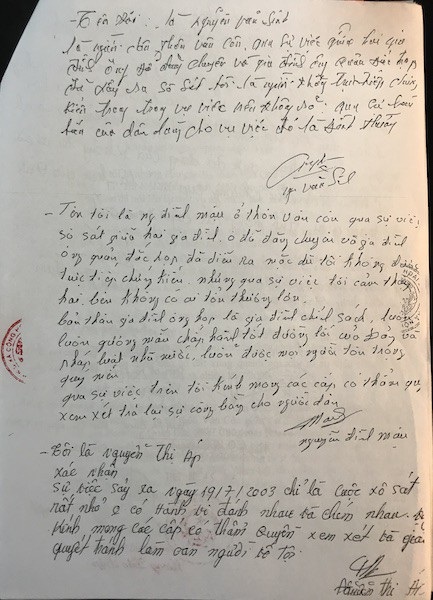 - Tên Tôi: là nguyễn văn Sinh
là người dân thôn vân côn, qua sự việc giữa hai gia
đình ông Đỗ Đăng Chuyên và gia đình ông Quản Đắc Họp
đã xảy ra sô sát tôi là người không trực tiếp chứng
kiến trong vụ việc nên không rõ. qua
bàn của dân làng cho vụ việc đó là bình thường
văn Sinh
- Tên tôi là ng đình máu ở thôn vân côn qua sự việc
sô sát giữa hai gia đình, ô đỗ đăng chuyên và gia đình
ông quản đắc họp đã diễn ra mặc dù tôi không được
trực tiếp chứng kiến. nhưng qua sự việc tôi cảm thấy
hai bên không có ai tổn thương lớn.
bản thân gia đình ông họp là gia đình chính sách, luôn
luôn gương mẫu chấp hành tốt đường lối của Đảng và
pháp luật nhà nước, luôn được mọi người tôn trọng
quy mến
qua sự việc trên tôi kính mong các cấp có thẩm qu
xem xét trả lại sự công bằng cho người dân
nguyễn đình máu
- Tôi là nguyễn Thị Áp
xác nhận
sự việc sảy ra ngày 19/7/2003 chỉ là cuộc xô sát
rất nhỏ k có hành vi đánh nhau và chém nhau.
kính mong các cấp có thẩm quyền xem xét và giải
quyết tránh làm oan người vô tội
thị Á